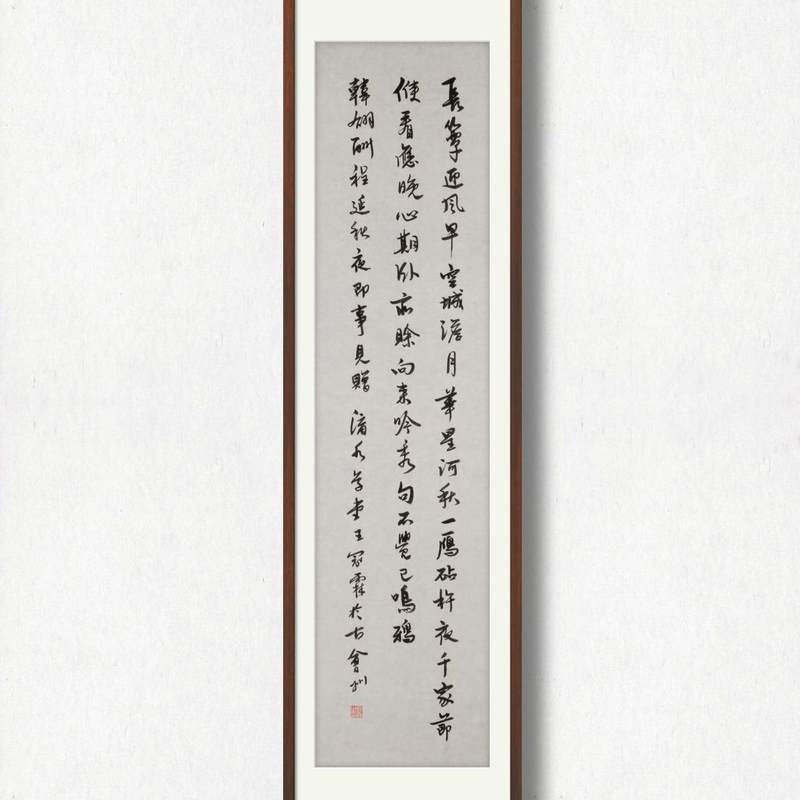 長簟迎風早空城澹月華星河秋一鴈砧杵夜千家節
候看應晚心期臥亦賒向來吟秀句不覺已鳴鴉
韓翃酬程延秋夜即事見贈 水堂王冠霖於古會州